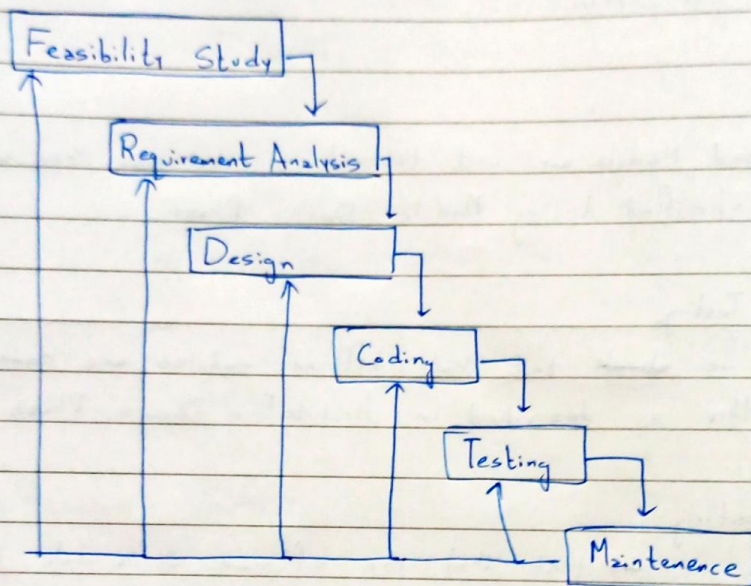 Feasibility Study
Requirement Analysis
Design
Coding
Testing
Maintenence